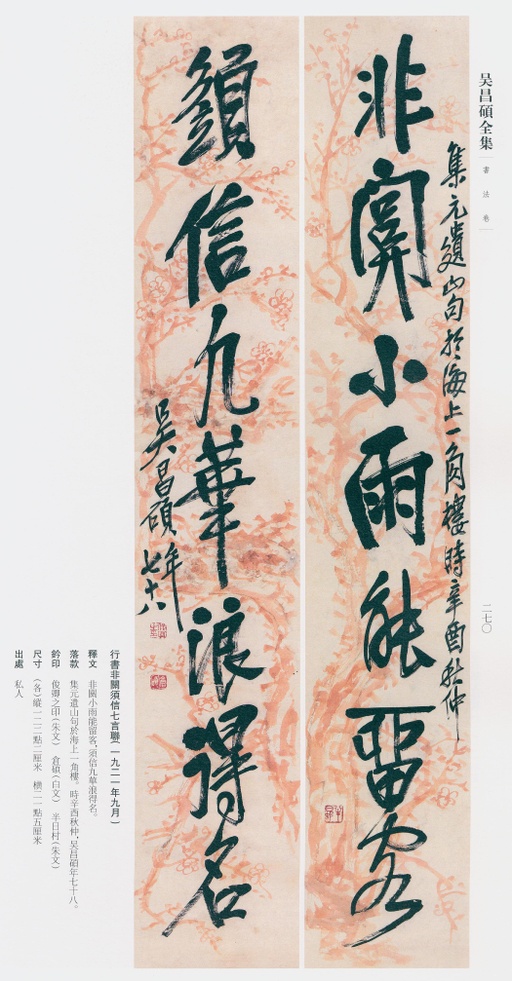 吴昌碩全集
書法卷
二七〇
集元遺山句於海上一角樓時辛酉秋仲
非關小雨能留客
須信九華浪得名
吴昌碩年七十八
行書非關須信七言聯(一九二一年九月)
釋文 非關小雨能留客,須信九華浪得名。
落款 集元遺山句於海上一角樓。時辛酉秋仲,吴昌碩年七十八。
鈐印 俊卿之印(朱文) 倉碩(白文) 半日村(朱文)
尺寸 (各)縱一二二點二厘米 橫二一點五厘米
出處 私人